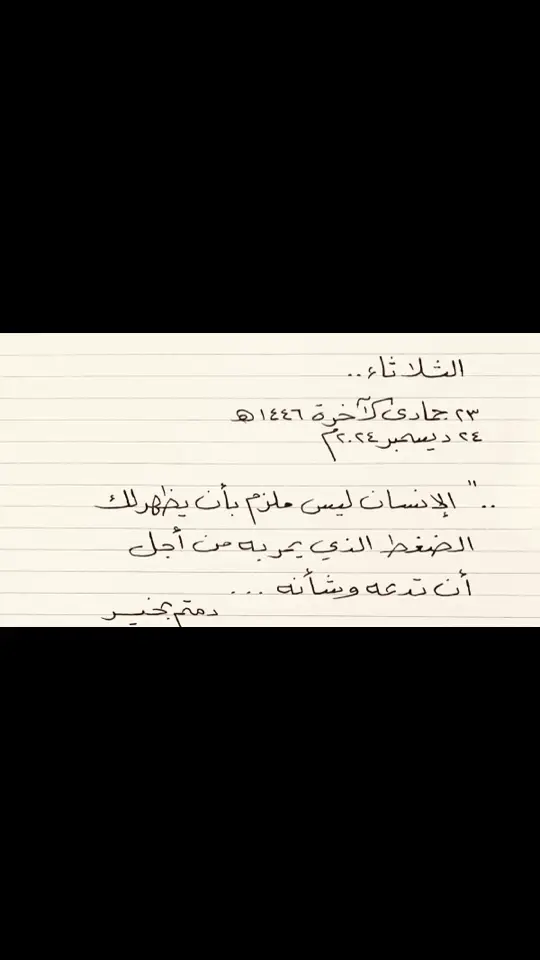 الثلاثاء..
٢٣ جمادى الآخرة ١٤٤٦هـ
٢٤ ديسمبر ٢٠٢٤م
.." الإنسان ليس ملزم بأن يظهر لك
الضغط الذي يمر به من أجل
أن تدعه وشأنه ...
دمتم بخير